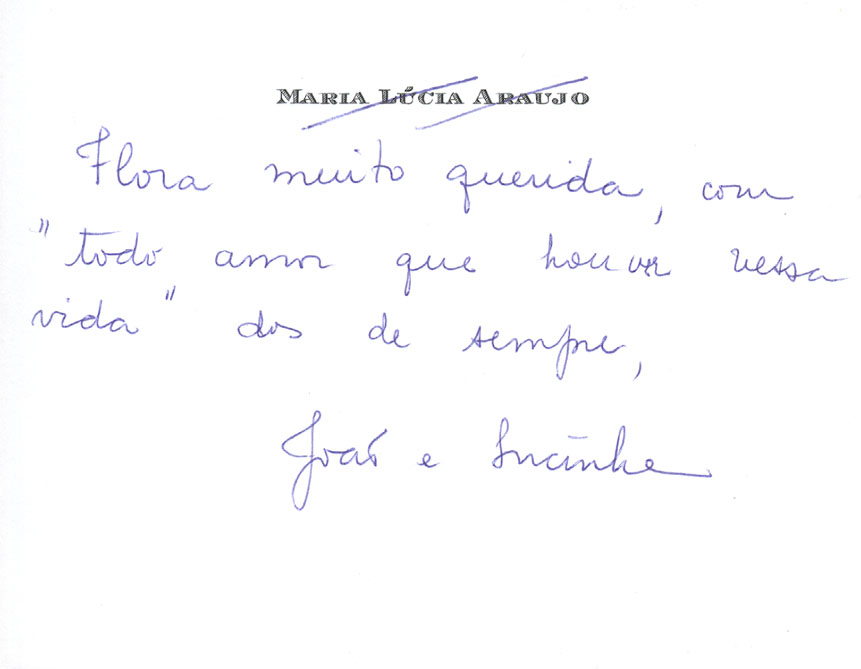 MARIA LÚCIA ARAUJO
Flora muito querida, com
"todo amor que houver nessa
vida" dos de sempre,
João e Lucinha